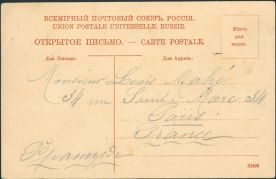 ВСЕМІРНЫЙ ПОЧТОВЫЙ СОЮЗЪ. РОССІЯ.
UNION POSTALE UNIVERSELLE. RUSSIE.
ОТКРЫТОЕ ПИСЬМО. — CARTE POSTALE.
Мѣсто
для
марки.
Для Письма:
Для Адреса:
Monsieur Louis Mahé
34 rue Saint-Marc 34
Paris
France
53490